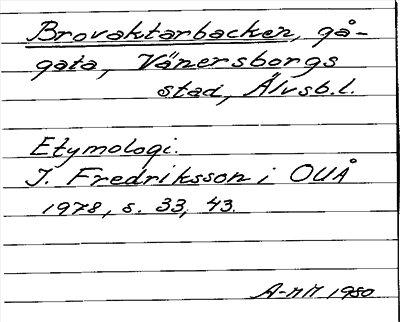 Brovaktarbacken, gå-
gata, Vänersborgs
stad, Älvsb.l.
Etymologi.
I. Fredriksson i OUÅ
1978, s. 33, 43.
A-MM 1980